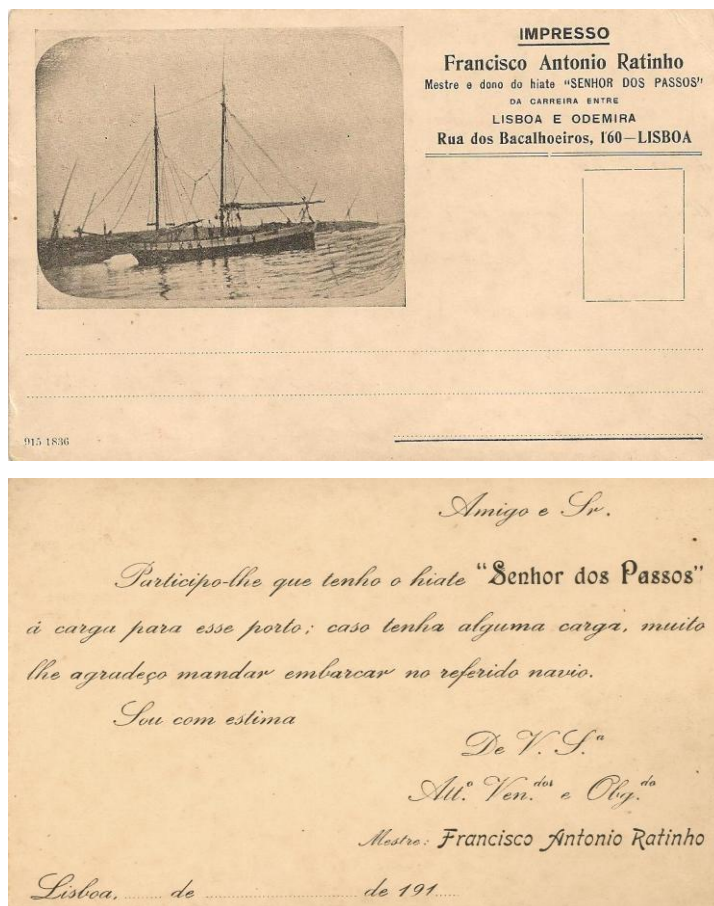 IMPRESSO
Francisco Antonio Ratinho
Mestre e dono do hiate "SENHOR DOS PASSOS"
DA CARREIRA ENTRE
LISBOA E ODEMIRA
Rua dos Bacalhoeiros, 160—LISBOA
915 1836
Amigo e Sr.
Participo-lhe que tenho o hiate "Senhor dos Passos"
á carga para esse porto; caso tenha alguma carga, muito
lhe agradeço mandar embarcar no referido navio.
Sou com estima
De V. S.ª
Att.º Ven.dor e Obg.do
Mestre: Francisco Antonio Ratinho
Lisboa, ........ de ................................ de 191.....